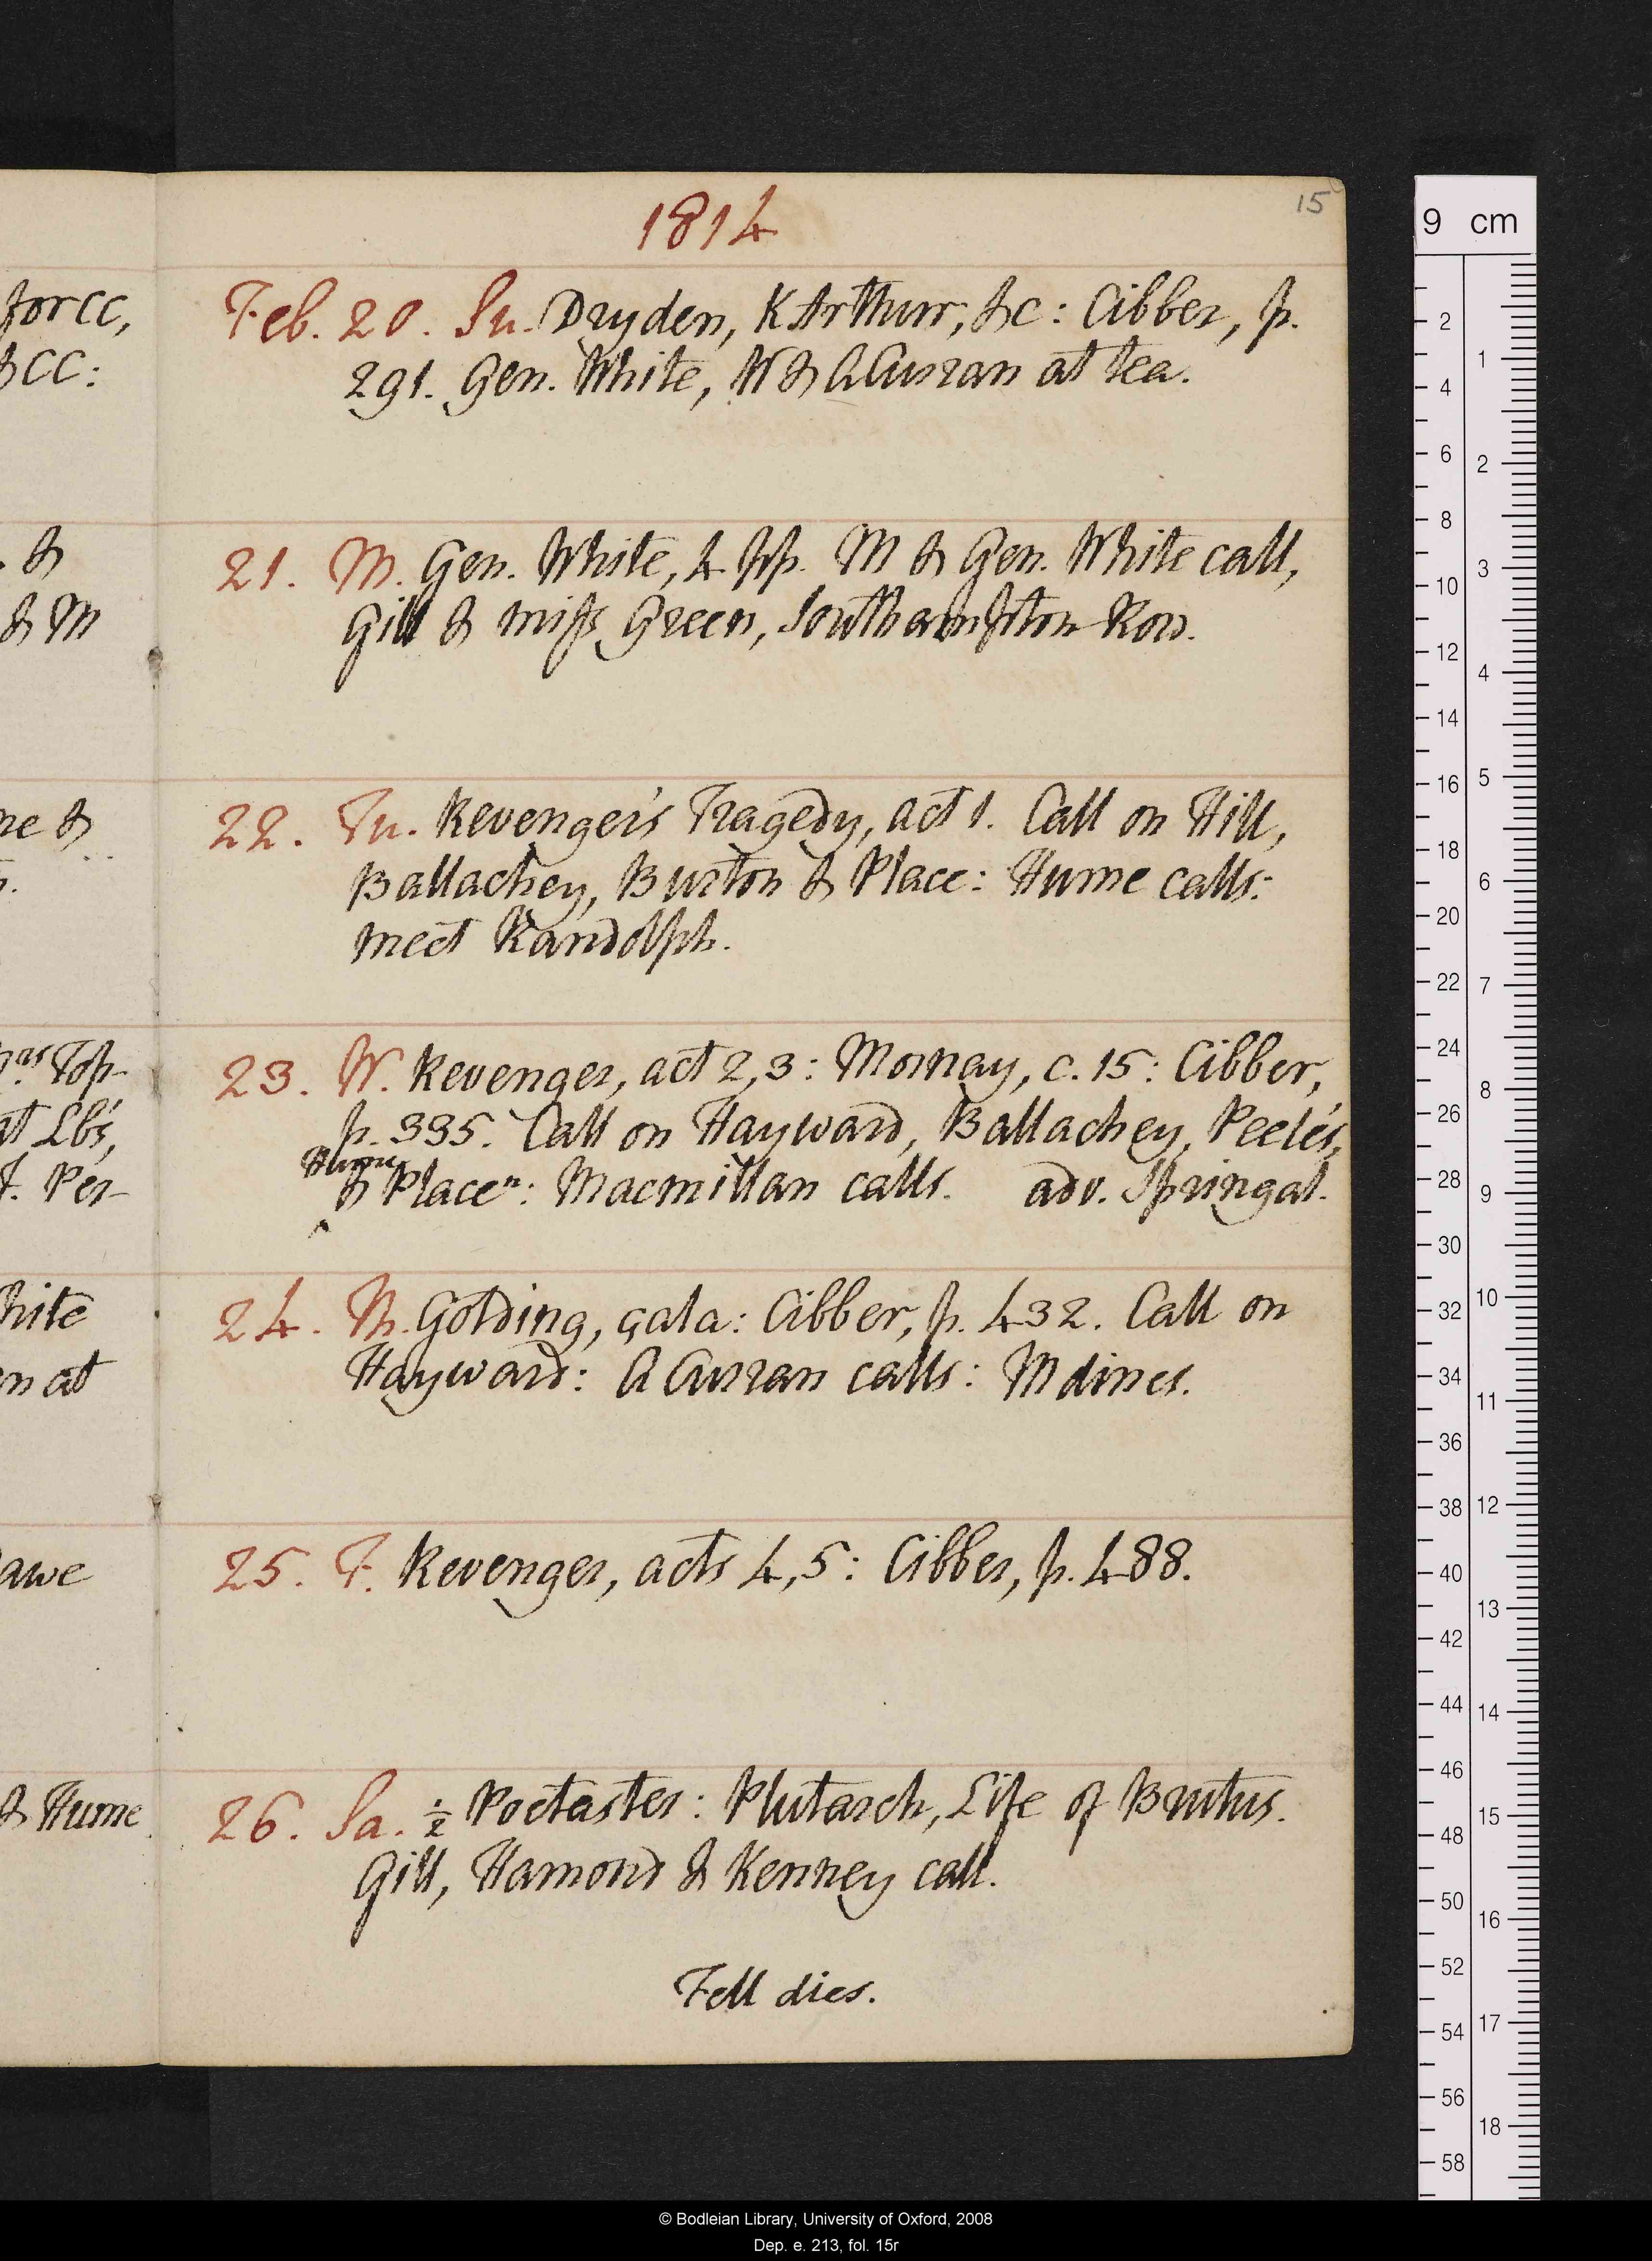 1814
15
Feb. 20. Su. Dryden, K Arthur, &c: Cibber, p.
291. Gen. White, W & A Curran at tea.
21. M. Gen. White, 4 pp. M & Gen. White call,
Gill & miss Green, Southampton Row.
22. Tu. Revenger's Tragedy, act 1. Call on Hill,
Ballachey, Burton & Place: Hume calls:
meet Randolph.
23. W. Revenger, act 2, 3: Mornay, c. 15: Cibber,
p. 335. Call on Hayward, Ballachey, Peele's,
Hume
& Place n: Macmillan calls. adv. Springal.
24. Th. Golding, çala: Cibber, p. 432. Call on
Hayward: A Curran calls: M dines.
25. F. Revenger, acts 4, 5: Cibber, p. 488.
26. Sa. ½ Poetaster: Plutarch, Life of Brutus.
Gill, Hamond & Kenney call.
Fell dies.
for CC,
& CC:
. &
& M
ne &
Top-
at Lb's,
F. Per-
hite
n at
awe
& Hume
9 cm
2
4
6
8
10
12
14
16
18
20
22
24
26
28
30
32
34
36
38
40
42
44
46
48
50
52
54
56
58
1
2
3
4
5
6
7
8
9
10
11
12
13
14
15
16
17
18
© Bodleian Library, University of Oxford, 2008
Dep. e. 213, fol. 15r